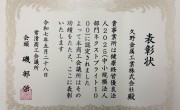 表彰状
久野金属工業株式会社 殿
貴事業所は健康経営優良法
人2025(中小規模法人
部門ネクストブライト10
00)に認定されました
よって本商工会議所はその
功績をたたえ、ここに表彰
いたします
令和七年五月二十八日
常滑商工会議所
会頭 磯部 榮